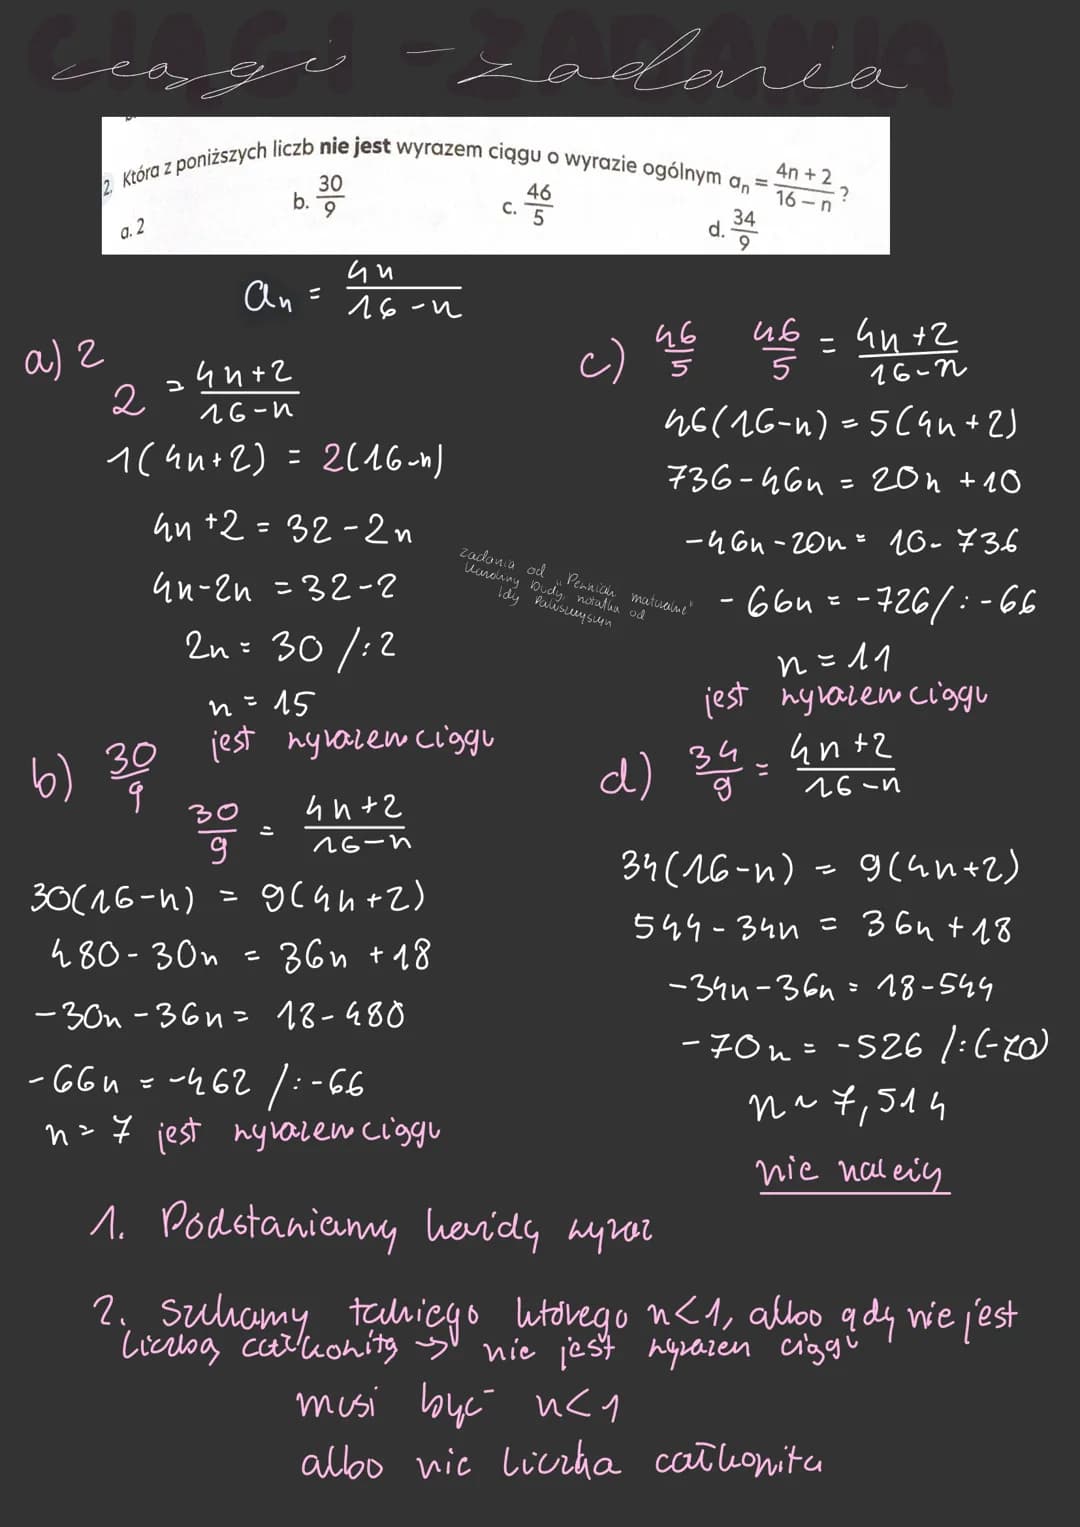 CIĄGI - ZADANIA
ciągi - zadania
2. Która z poniższych liczb nie jest wyrazem ciągu o wyrazie ogólnym aₙ = (4n + 2)/(16 − n) ?
a. 2 b. 30/9 c. 46/5 d. 34/9
aₙ = 4n/(16-n)
a) 2
2 = (4n+2)/(16-n)
1(4n+2) = 2(16-n)
4n+2 = 32-2n
4n-2n = 32-2
2n = 30 /:2
n = 15
jest wyrazem ciągu
b) 30/9
30/9 = (4n+2)/(16-n)
30(16-n) = 9(4n+2)
480-30n = 36n+18
-30n-36n = 18-480
-66n = -462 /:-66
n = 7 jest wyrazem ciągu
zadania od "Pewniak maturalne"
Karoliny Dudy, notatka od
Idy
c) 46/5 46/5 = (4n+2)/(16-n)
46(16-n) = 5(4n+2)
736-46n = 20n+10
-46n-20n = 10-736
-66n = -726/:-66
n = 11
jest wyrazem ciągu
d) 34/9 = (4n+2)/(16-n)
34(16-n) = 9(4n+2)
544-34n = 36n+18
-34n-36n = 18-544
-70n = -526 /:(-70)
n ~ 7,514
nie należy
1. Podstawiamy każdy wyraz
2. Szukamy takiego którego n<1, albo gdy nie jest
liczbą całkowitą → nie jest wyrazem ciągu
musi być n<1
albo nie liczba całkowita